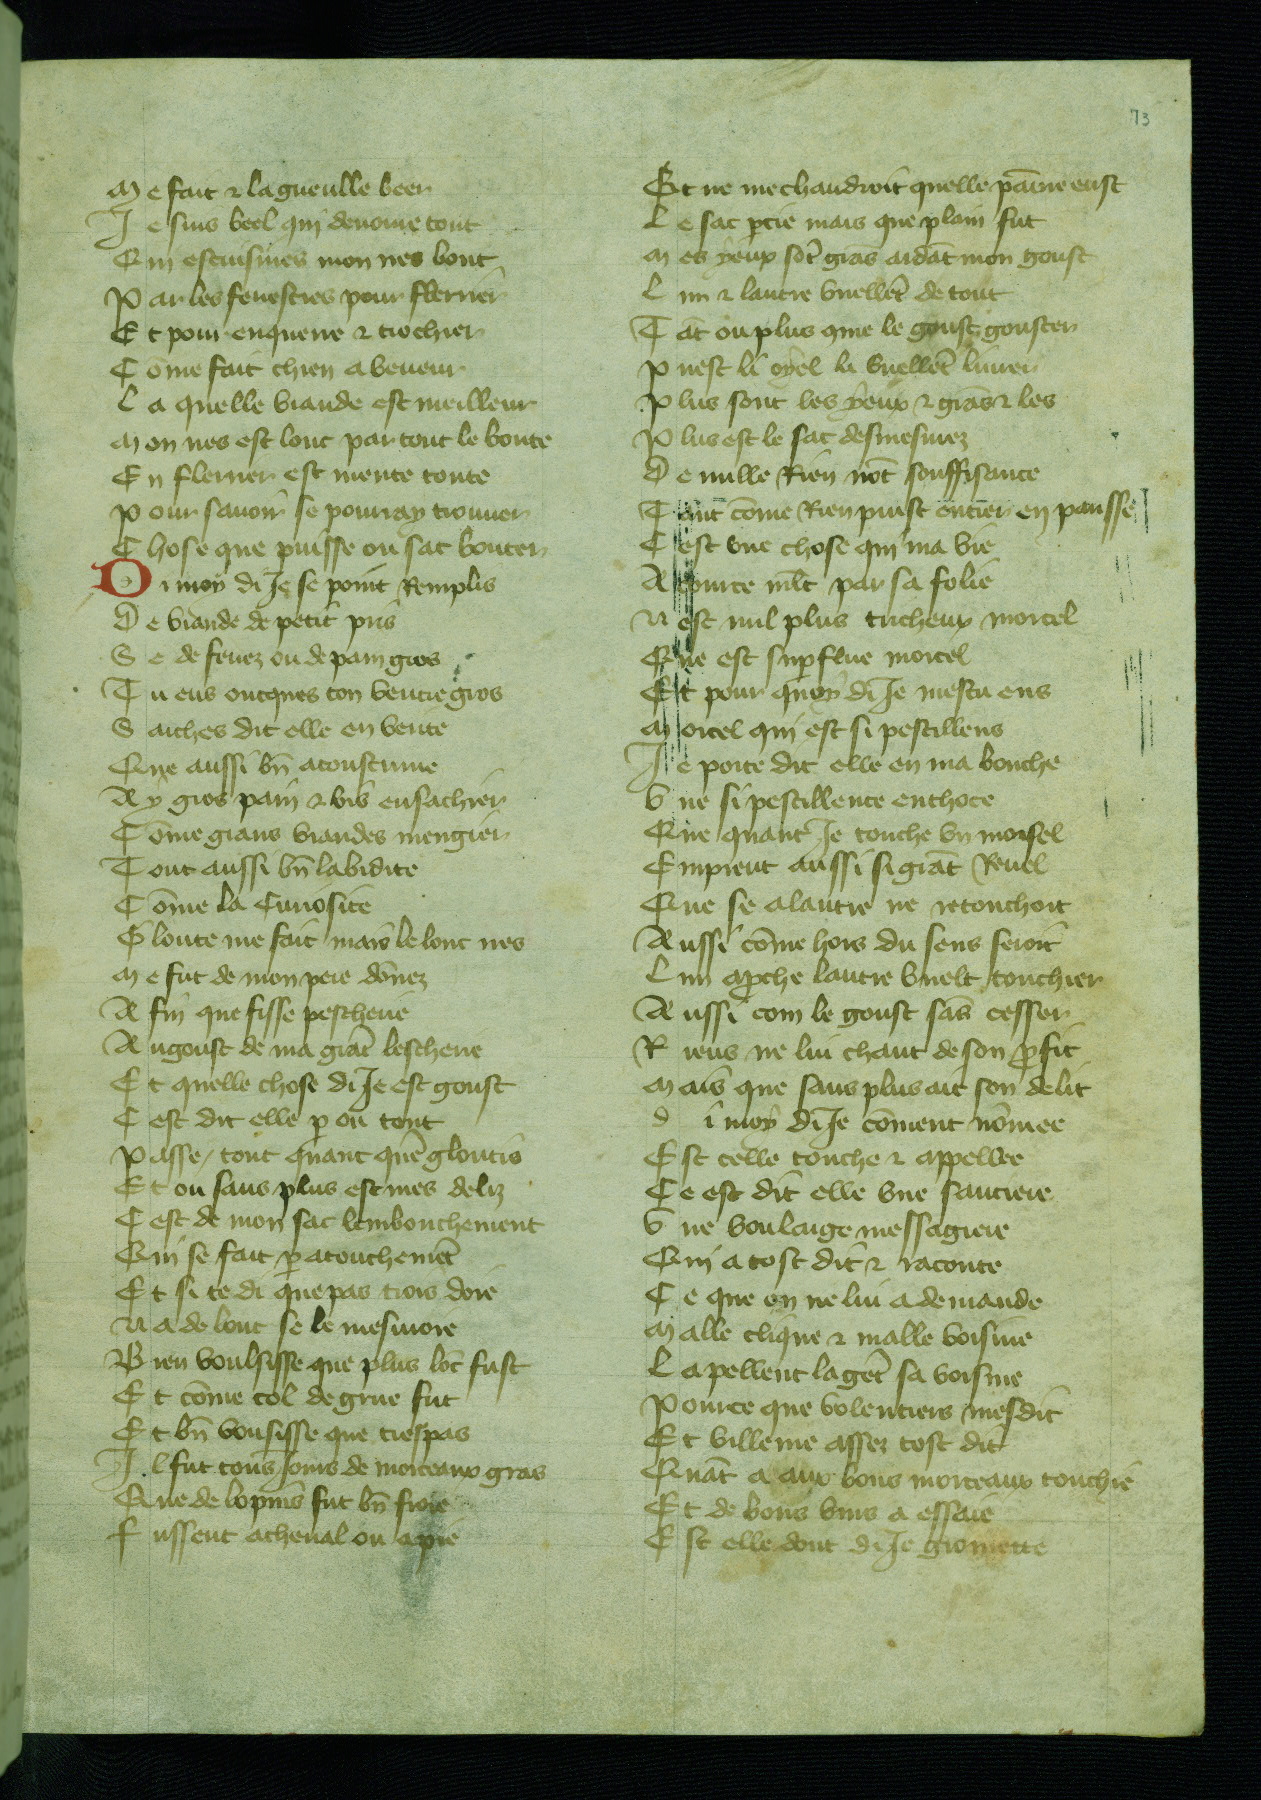 73
Me fait & la gueulle beer
Je suis beel qui devoure tout
Qui es cuisines mon nes bout
Par les fenestres pour flerier
Et pour enquerre & trochier
Cōme fait chien a veneur
La quelle viande est meilleur
Mon nes est lonc par tout le boute
En flerier est mente toute
Pour savoir se pourray trouver
Chose que puisse ou sac bouter
Di moy di Je se point Remplis
De viande de petit pris
Se de fevez ou de pain gros
Tu eus oncques ton ventre gros
Saiches dit elle en verite
Que aussi bn̄ acoustume
Ay gros pain & vis ensachier
Cōme grans viandes mengier
Tout aussi bn̄ labidite
Cōme la Curiosite
Gloute me fait mais le lonc nes
Me fut de mon pere dōnez
A fin que fisse pescherie
Au goust de ma grāt lescherie
Et quelle chose di Je est goust
Cest dit elle p ou tout
Passe / tout quant quē gloutis
Et ou sans plus est mes deliz
Cest de mon sac lembouchement
Qui se fait p atouchemēt
Et si te di que pas trois doie
Na de lonc se le mesuroie
Bien voulsisse que plus lōc fust
Et cōme col de grue fut
Et bn̄ vousisse que trespas
Il fut tous Jours de morceaux gras
Que de lopins fut bn̄ froie
Fussent a cheval ou a pie
Et ne me chaudroit quelle pāine eust
Le sac pcie mais que plain fut
Mes yeux sōt grās aidāt mon goust
Lun & lautre vuellēt de tout
Tāt ou plus que le goust gouster
Puest li oyel li vuellēt livrer
Plus sont les yeux & grās & les
Plus est le sac desmesurez
De nulle Rien nōt souffisance
Tant cōme Rien puist entrer en pansse
Cest une chose qui ma vie
Acource mlt par sa folie
Nest nul plus tricheux morcel
Que est supflue morcel
Et pour quoy di Je mestu ens
Morcel qui est si pestillens
Je porte dit elle en ma bouche
Une si pestillente enthoce
Que quant Je touche un morsel
Emprent aussi si grāt Revel
Que se a lautre ne retouchoit
Aussi cōme hors du sens seroit
Lun aproche lautre vuelt touchier
Aussi com le goust sās cesser
Riens ne lui chaut de son pfit
Mais que sans plus ait son delit
di moy di Je cōment nōmee
Est celle touche & appellee
Ce est dit elle une sauciere
Une voulaige messagiere
Qui a tost dit & raconte
Ce que on ne lui a demande
Malle clique & malle voisine
Lapellent la gēt sa voisine
Pource que volentiers mesdit
Et villenie assez tost dit
Quāt a aux bons morceaux touchie
Et de bons vins a essaie
Est elle dont di Je gromette